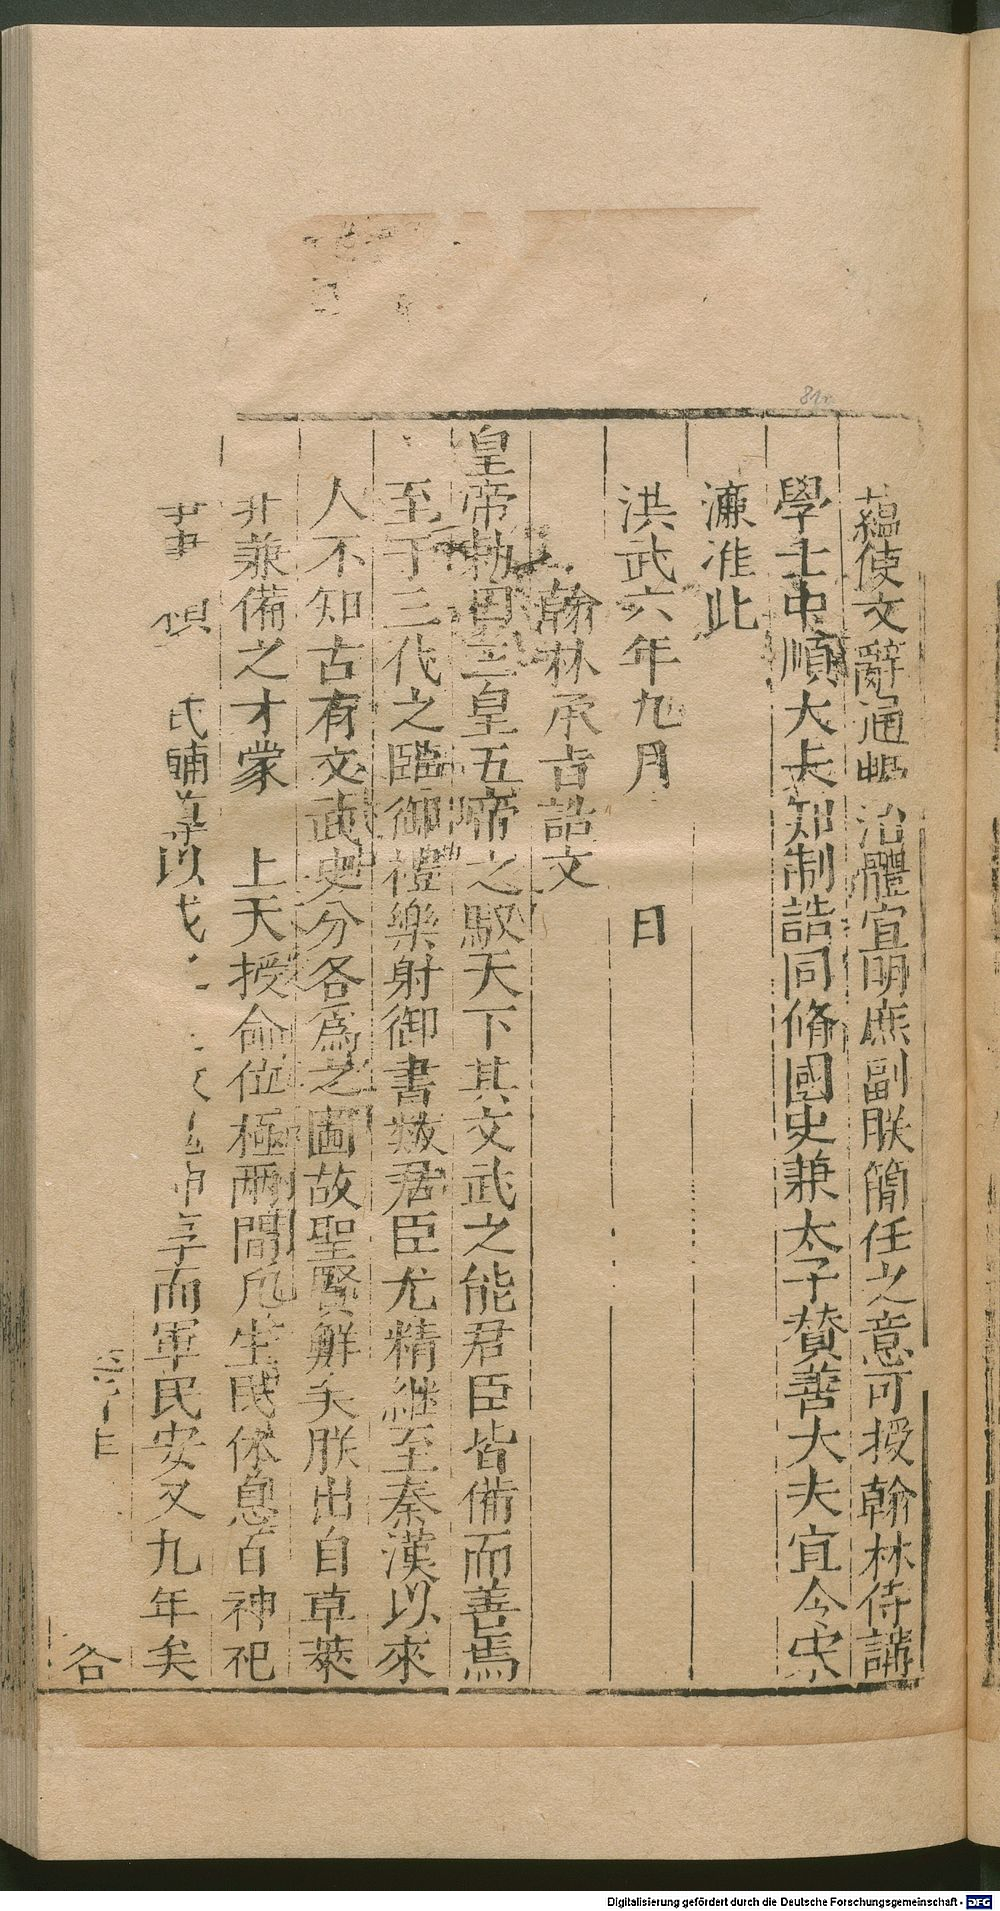 蘊使文辭通暢治體宜明庶副朕簡任之意可授翰林侍講
學士中順大夫知制誥同脩國史兼太子賛善大夫宜令宋
濂准此
洪武六年九月　　日
翰林承旨誥文
皇帝勑曰三皇五帝之馭天下其文武之能君臣皆備而善焉
至于三代之臨御禮樂射御書數君臣尤精繼至秦漢以來
人不知古有文武𠮓分各爲之圖故聖賢鮮矣朕出自草萊
非兼備之才蒙　上天授命位極兩間凡生民休息百神祀
事　　氏輔導以　　　　神享而軍民安又九年矣
谷
81r
Digitalisierung gefördert durch die Deutsche Forschungsgemeinschaft - DFG